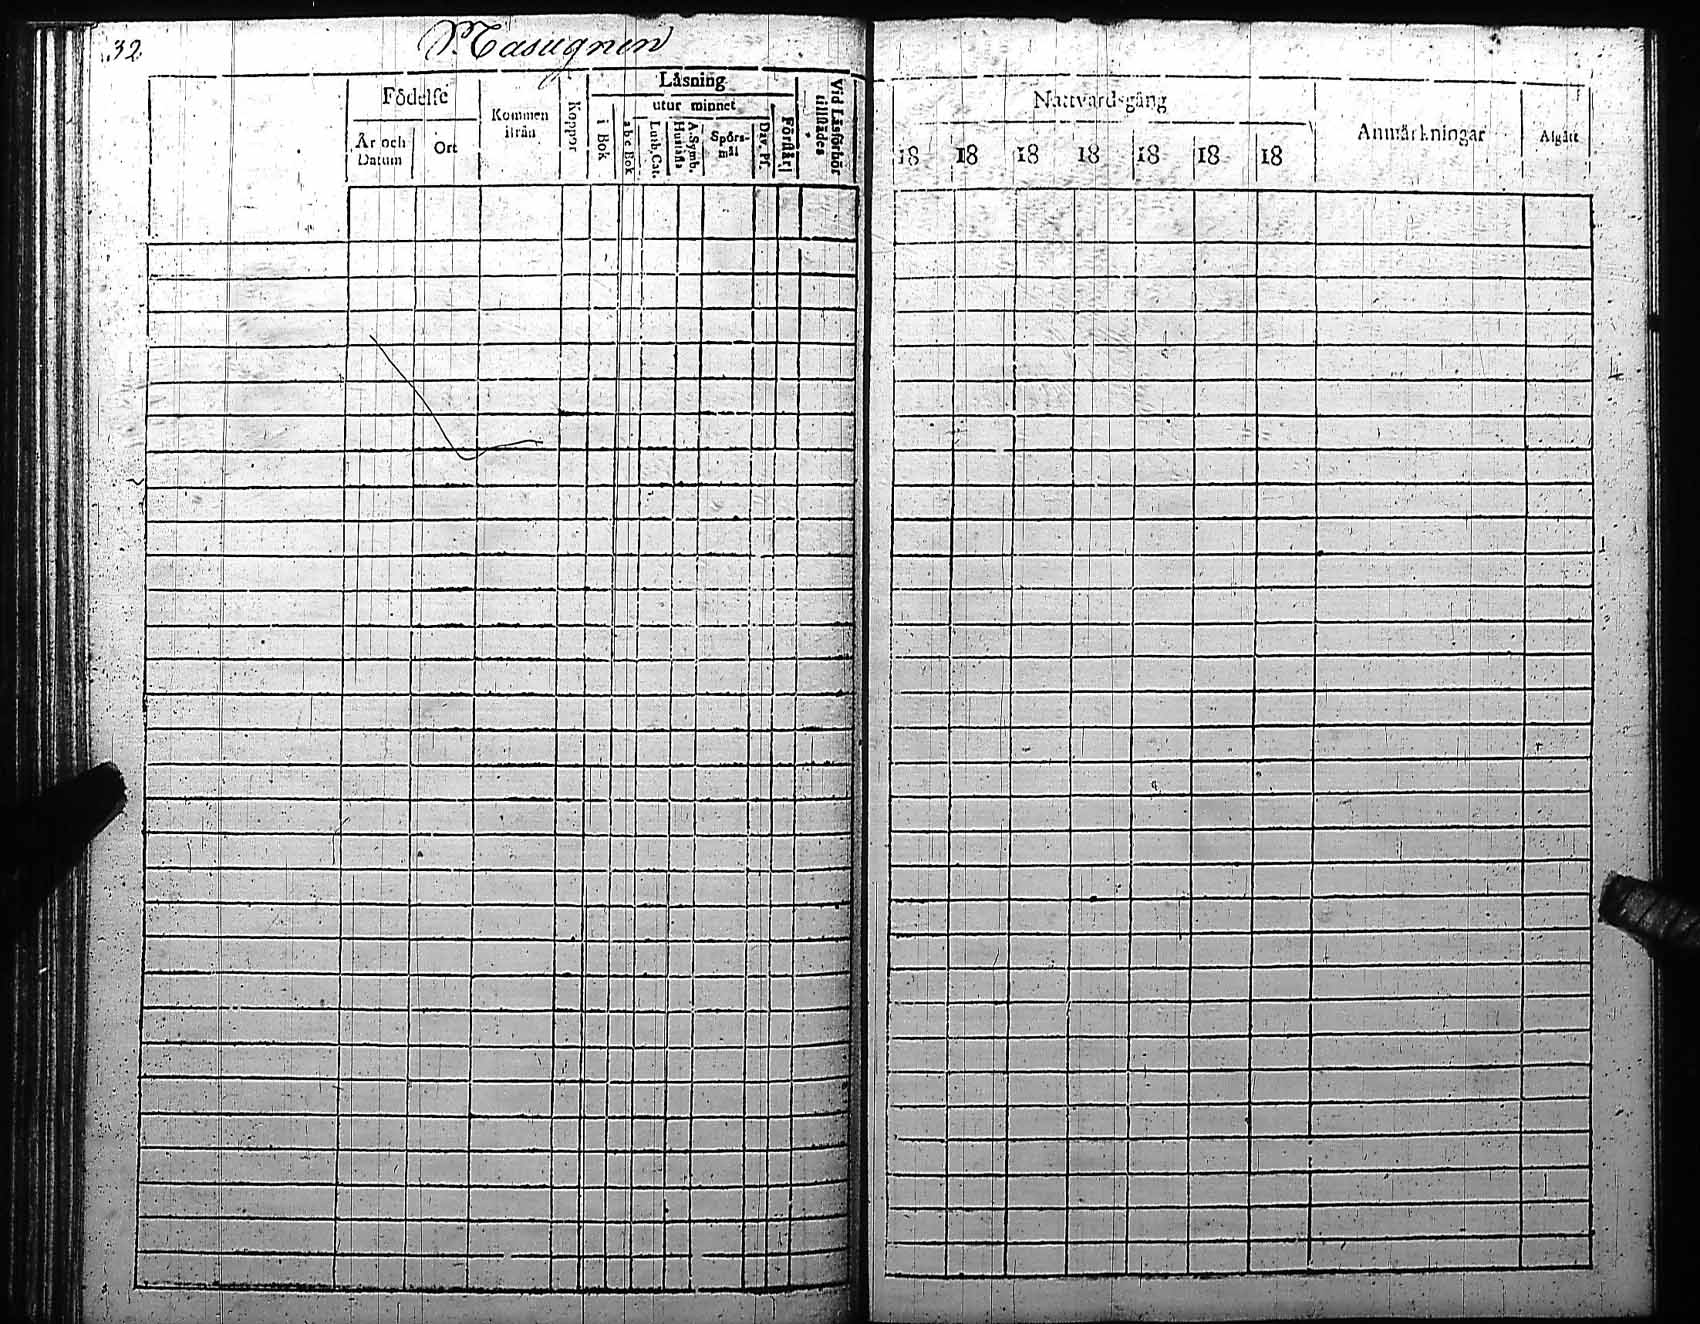 32.
Masugnen
Födelse
År och Datum
Ort
Kommen ifrån
Koppor
Läsning
i Bok
utur minnet
a b c Bok
Luth. Cat.
Hustafla
A. Symb.
Spörs-mål
Dav. Ps.
Förstår
Vid Läsförhör tillstädes
Nattvardsgång
18 18 18 18 18 18 18
Anmärkningar
Afgått